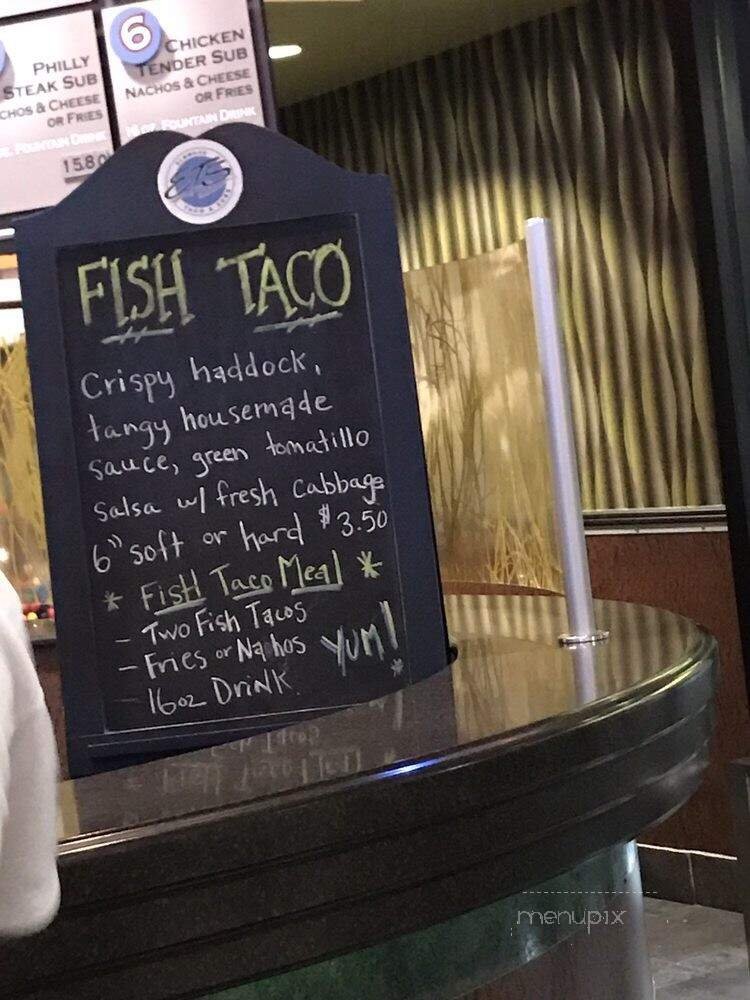 PHILLY
STEAK SUB
NACHOS & CHEESE
OR FRIES
FOUNTAIN DRINK
15.80
6
CHICKEN
TENDER SUB
NACHOS & CHEESE
OR FRIES
16 OZ. FOUNTAIN DRINK
FISH TACO
Crispy haddock,
tangy housemade
sauce, green tomatillo
salsa w/ fresh cabbage
6" soft or hard $3.50
* FISH TACO MEAL *
- Two Fish Tacos
- Fries or Nachos
- 16oz DRINK
YUM!
*
menupix